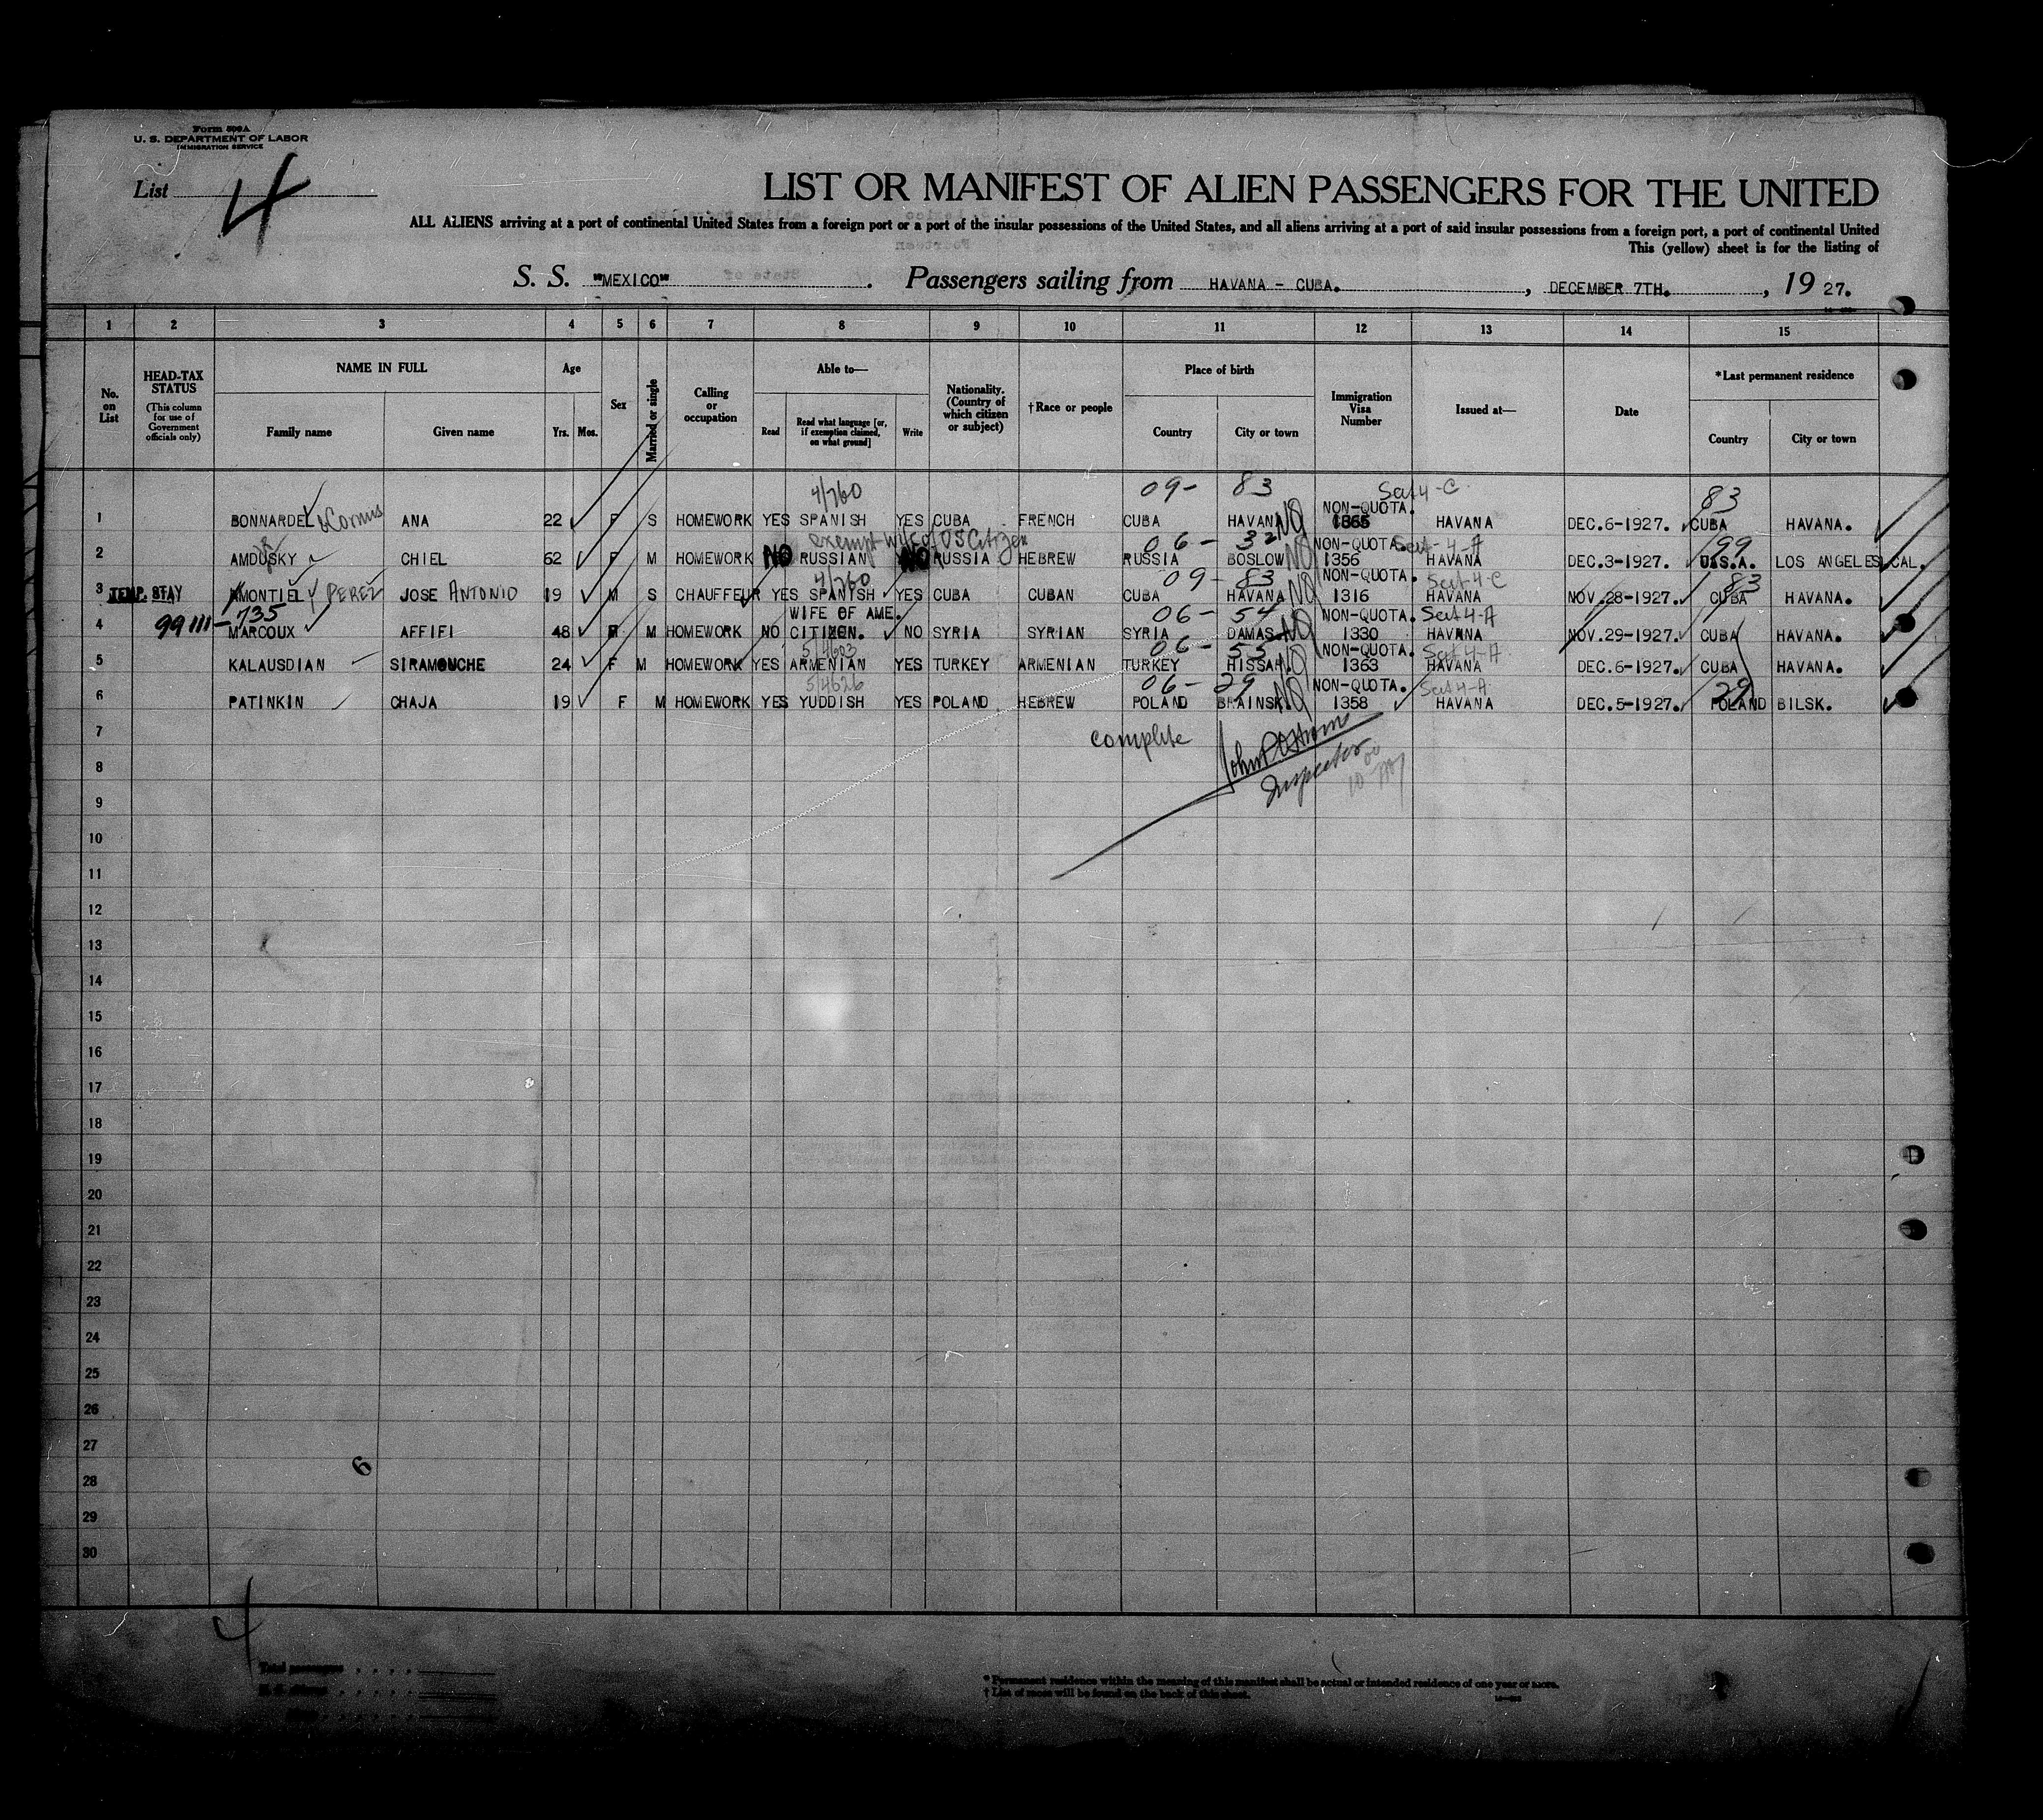 Form 500A
U. S. DEPARTMENT OF LABOR
IMMIGRATION SERVICE
List 4
LIST OR MANIFEST OF ALIEN PASSENGERS FOR THE UNITED
ALL ALIENS arriving at a port of continental United States from a foreign port or a port of the insular possessions of the United States, and all aliens arriving at a port of said insular possessions from a foreign port, a port of continental United
This (yellow) sheet is for the listing of
S. S. "MEXICO". Passengers sailing from HAVANA - CUBA., DECEMBER 7TH., 19 27.
1 2 3 4 5 6 7 8 9 10 11 12 13 14 15
No. on List
HEAD-TAX STATUS (This column for use of Government officials only)
NAME IN FULL
Family name
Given name
Age
Yrs. Mos.
Sex
Married or single
Calling or occupation
Able to—
Read
Read what language [or, if exemption claimed, on what ground]
Write
Nationality. (Country of which citizen or subject)
†Race or people
Place of birth
Country
City or town
Immigration Visa Number
Issued at—
Date
*Last permanent residence
Country
City or town
4/760 09- 83 Sect 4-C 83
NON-QUOTA.
1 BONNARDEL ANA 22 F S HOMEWORK YES SPANISH YES CUBA FRENCH CUBA HAVANA NQ 1365 HAVANA DEC.6-1927. CUBA HAVANA.
exempt wife of US Citizen 06- 32 NON-QUOTA. Sect-4-A 99
2 AMDUSKY CHIEL 62 F M HOMEWORK NO RUSSIAN NO RUSSIA HEBREW RUSSIA BOSLOW NQ 1356 HAVANA DEC.3-1927. U.S.A. LOS ANGELES,CAL.
4/760 09- 83 NON-QUOTA. Sect-4-C 83
3 TEMP. STAY MONTIEL Y PEREZ JOSE ANTONIO 19 M S CHAUFFEUR YES SPANISH YES CUBA CUBAN CUBA HAVANA NQ 1316 HAVANA NOV.28-1927. CUBA HAVANA.
99111-735 WIFE OF AME. 06- 54 NON-QUOTA. Sect 4-A
4 MARCOUX AFFIFI 48 F M HOMEWORK NO CITIZEN. NO SYRIA SYRIAN SYRIA DAMAS. NQ 1330 HAVANA NOV.29-1927. CUBA HAVANA.
5/4603 06- 53 NON-QUOTA. Sect 4-A
5 KALAUSDIAN SIRAMOUCHE 24 F M HOMEWORK YES ARMENIAN YES TURKEY ARMENIAN TURKEY HISSAR. NQ 1363 HAVANA DEC.6-1927. CUBA HAVANA.
5/4626 06- 29 NON-QUOTA. Sect 4-A 29
6 PATINKIN CHAJA 19 F M HOMEWORK YES YUDDISH YES POLAND HEBREW POLAND BRAINSK. NQ 1358 HAVANA DEC.5-1927. POLAND BILSK.
7 complete
Inspector
8
9
10
11
12
13
14
15
16
17
18
19
20
21
22
23
24
25
26
27
6
28
29
30
4
Total passengers
* Permanent residence within the meaning of this manifest shall be actual or intended residence of one year or more.
† List of races will be found on the back of this sheet.